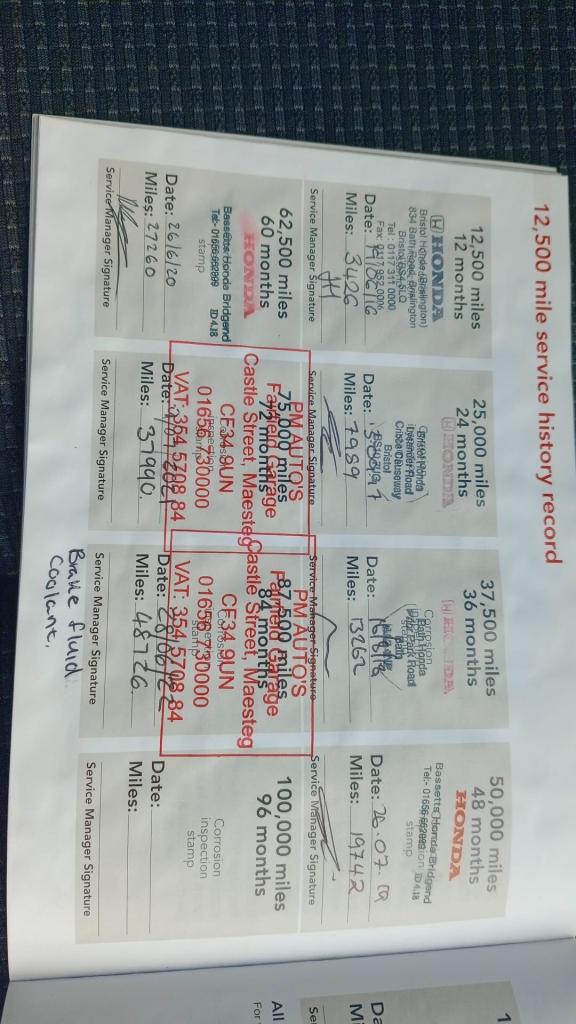 12,500 mile service history record
12,500 miles
12 months
HONDA
Bristol Honda (Brislington)
834 Bath Road, Brislington
Bristol BS4 5LQ
Tel: 0117 311 0000
Date:
Miles: 3426
Service Manager Signature
25,000 miles
24 months
HONDA
Bristol Honda
Cribbs Causeway
Bristol
Date:
Miles: 7989
Service Manager Signature
37,500 miles
36 months
HONDA
Corrosion
Bath Honda
Bath
Date:
Miles: 13362
Service Manager Signature
50,000 miles
48 months
HONDA
Bassetts Honda Bridgend
Tel:- 01656 ID 4.18
stamp
Date: 26.07.19
Miles: 19742
Service Manager Signature
62,500 miles
60 months
HONDA
Bassetts Honda Bridgend
Tel:- 01656 ID 4.18
stamp
Date: 26/6/20
Miles: 27260
Service Manager Signature
75,000 miles
72 months
PM AUTO'S
Fairfield Garage
Castle Street, Maesteg
CF34 9UN
01656 730000
VAT: 354 5708 84
Date:
Miles: 37990.
Service Manager Signature
87,500 miles
84 months
PM AUTO'S
Fairfield Garage
Castle Street, Maesteg
CF34 9UN
01656 730000
VAT: 354 5708 84
Date:
Miles: 48726.
Service Manager Signature
Brake fluid
Coolant.
100,000 miles
96 months
Corrosion
inspection
stamp
Date:
Miles:
Service Manager Signature
All
For